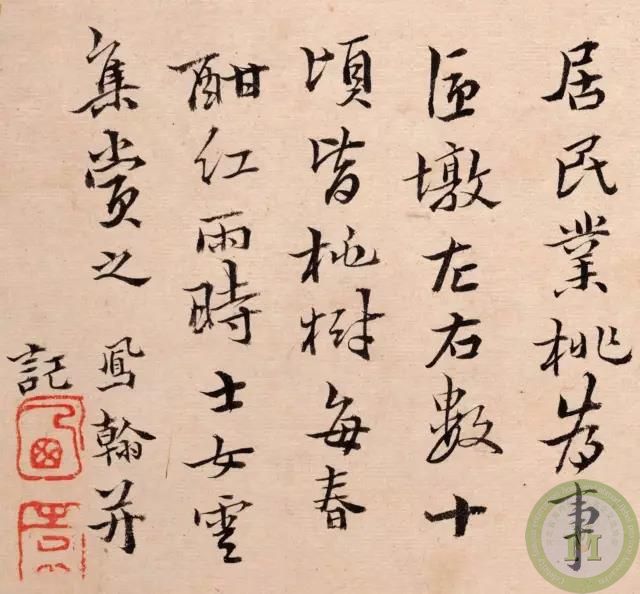 居民業桃為事
墩左右數十
頃皆桃樹每春
酣紅雨時士女雲
集賞之 鳳翰并
記